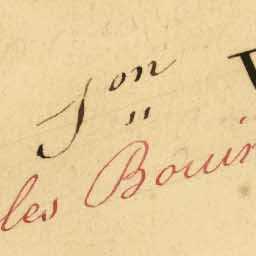 Son
les Bouir